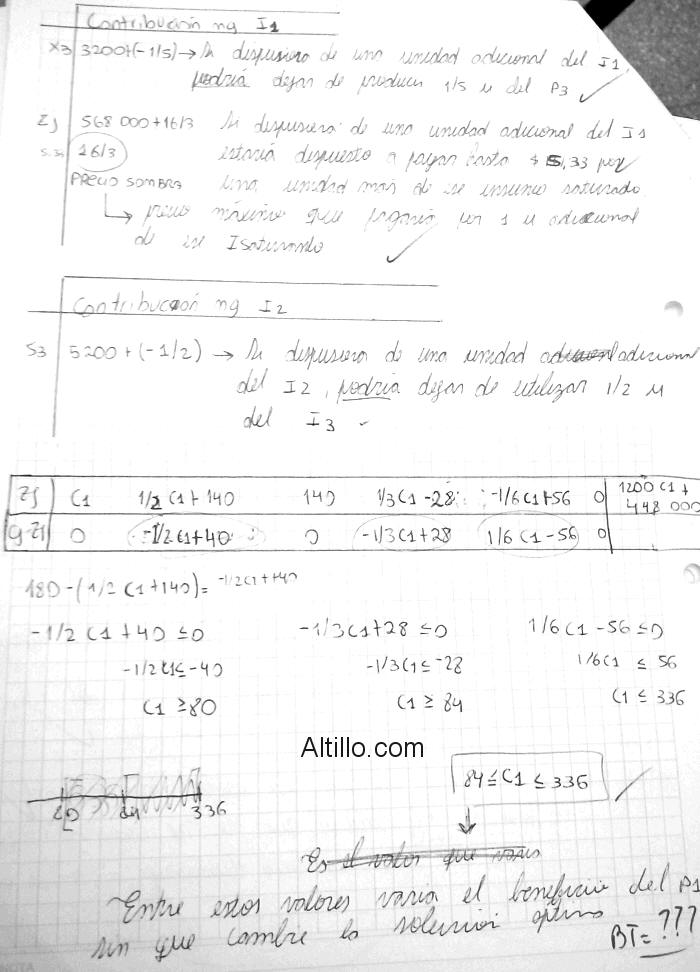 Contribución mg I1
X3 3200+(-1/5) → Si dispusiera de una unidad adicional del I1,
podría dejar de producir 1/5 u del P3 ✓
Zj 568 000+16/3 Si dispusiera de una unidad adicional del I1
16/3 estaría dispuesto a pagar hasta $ 5,33 por
PRECIO SOMBRA una unidad más de ese insumo saturado
↳ precio máximo que pagaría por 1 u adicional
de ese I saturado ✓
Contribución mg I2
S3 5200+(-1/2) → Si dispusiera de una unidad adicional adicional
del I2, podría dejar de utilizar 1/2 u
del I3
Zj C1 1/2 C1+140 140 1/3 C1-28 -1/6 C1+56 0 1200 C1+
448 000
0 -1/2 C1+40 0 -1/3 C1+28 1/6 C1-56 0
180-(1/2 C1+140)= -1/2 C1+140
-1/2 C1+40 ≤0 -1/3 C1+28 ≤0 1/6 C1-56 ≤0
-1/2 C1 ≤ -40 -1/3 C1 ≤ -28 1/6 C1 ≤ 56
C1 ≥ 80 C1 ≥ 84 C1 ≤ 336
Altillo.com
84 ≤ C1 ≤ 336 ✓
80 84 336
Es el valor que varia
Entre estos valores varia el beneficio del P1
sin que cambie la solución optima
BT= ???